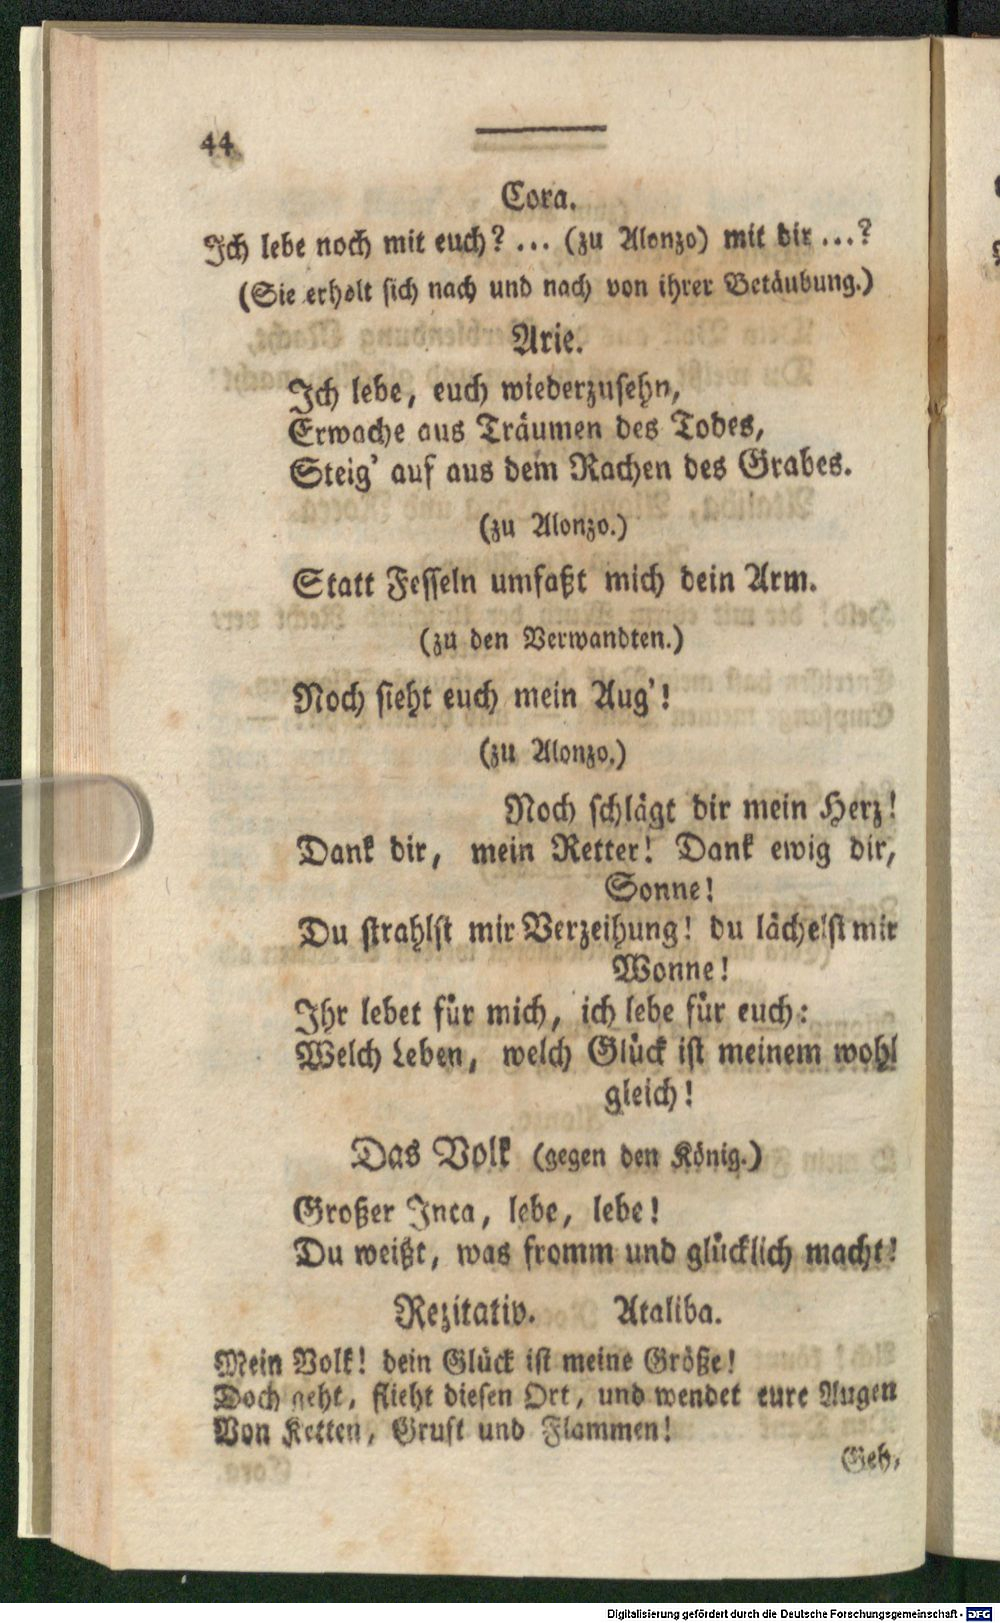 44
Cora.
Ich lebe noch mit euch? ... (zu Alonzo) mit dir ...?
(Sie erholt sich nach und nach von ihrer Betäubung.)
Arie.
Ich lebe, euch wiederzusehn,
Erwache aus Träumen des Todes,
Steig' auf aus dem Rachen des Grabes.
(zu Alonzo.)
Statt Fesseln umfaßt mich dein Arm.
(zu den Verwandten.)
Noch sieht euch mein Aug'!
(zu Alonzo.)
Noch schlägt dir mein Herz!
Dank dir, mein Retter! Dank ewig dir,
Sonne!
Du strahlst mir Verzeihung! du lächelst mir
Wonne!
Ihr lebet für mich, ich lebe für euch:
Welch Leben, welch Glück ist meinem wohl
gleich!
Das Volk (gegen den König.)
Großer Inca, lebe, lebe!
Du weißt, was fromm und glücklich macht!
Rezitativ. Ataliba.
Mein Volk! dein Glück ist meine Größe!
Doch geht, flieht diesen Ort, und wendet eure Augen
Von Ketten, Gruft und Flammen!
Geh,
Digitalisierung gefördert durch die Deutsche Forschungsgemeinschaft - DFG